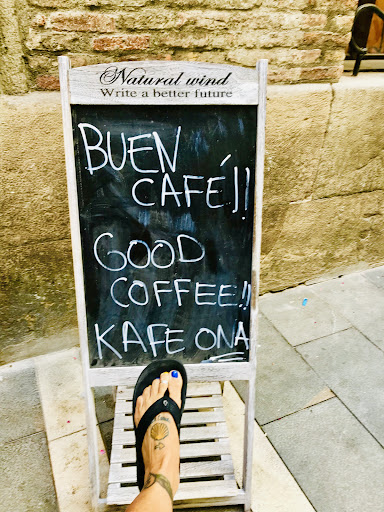 Natural wind
Write a better future
BUEN
CAFÉ!!
GOOD
COFFEE!!
KAFE ONA